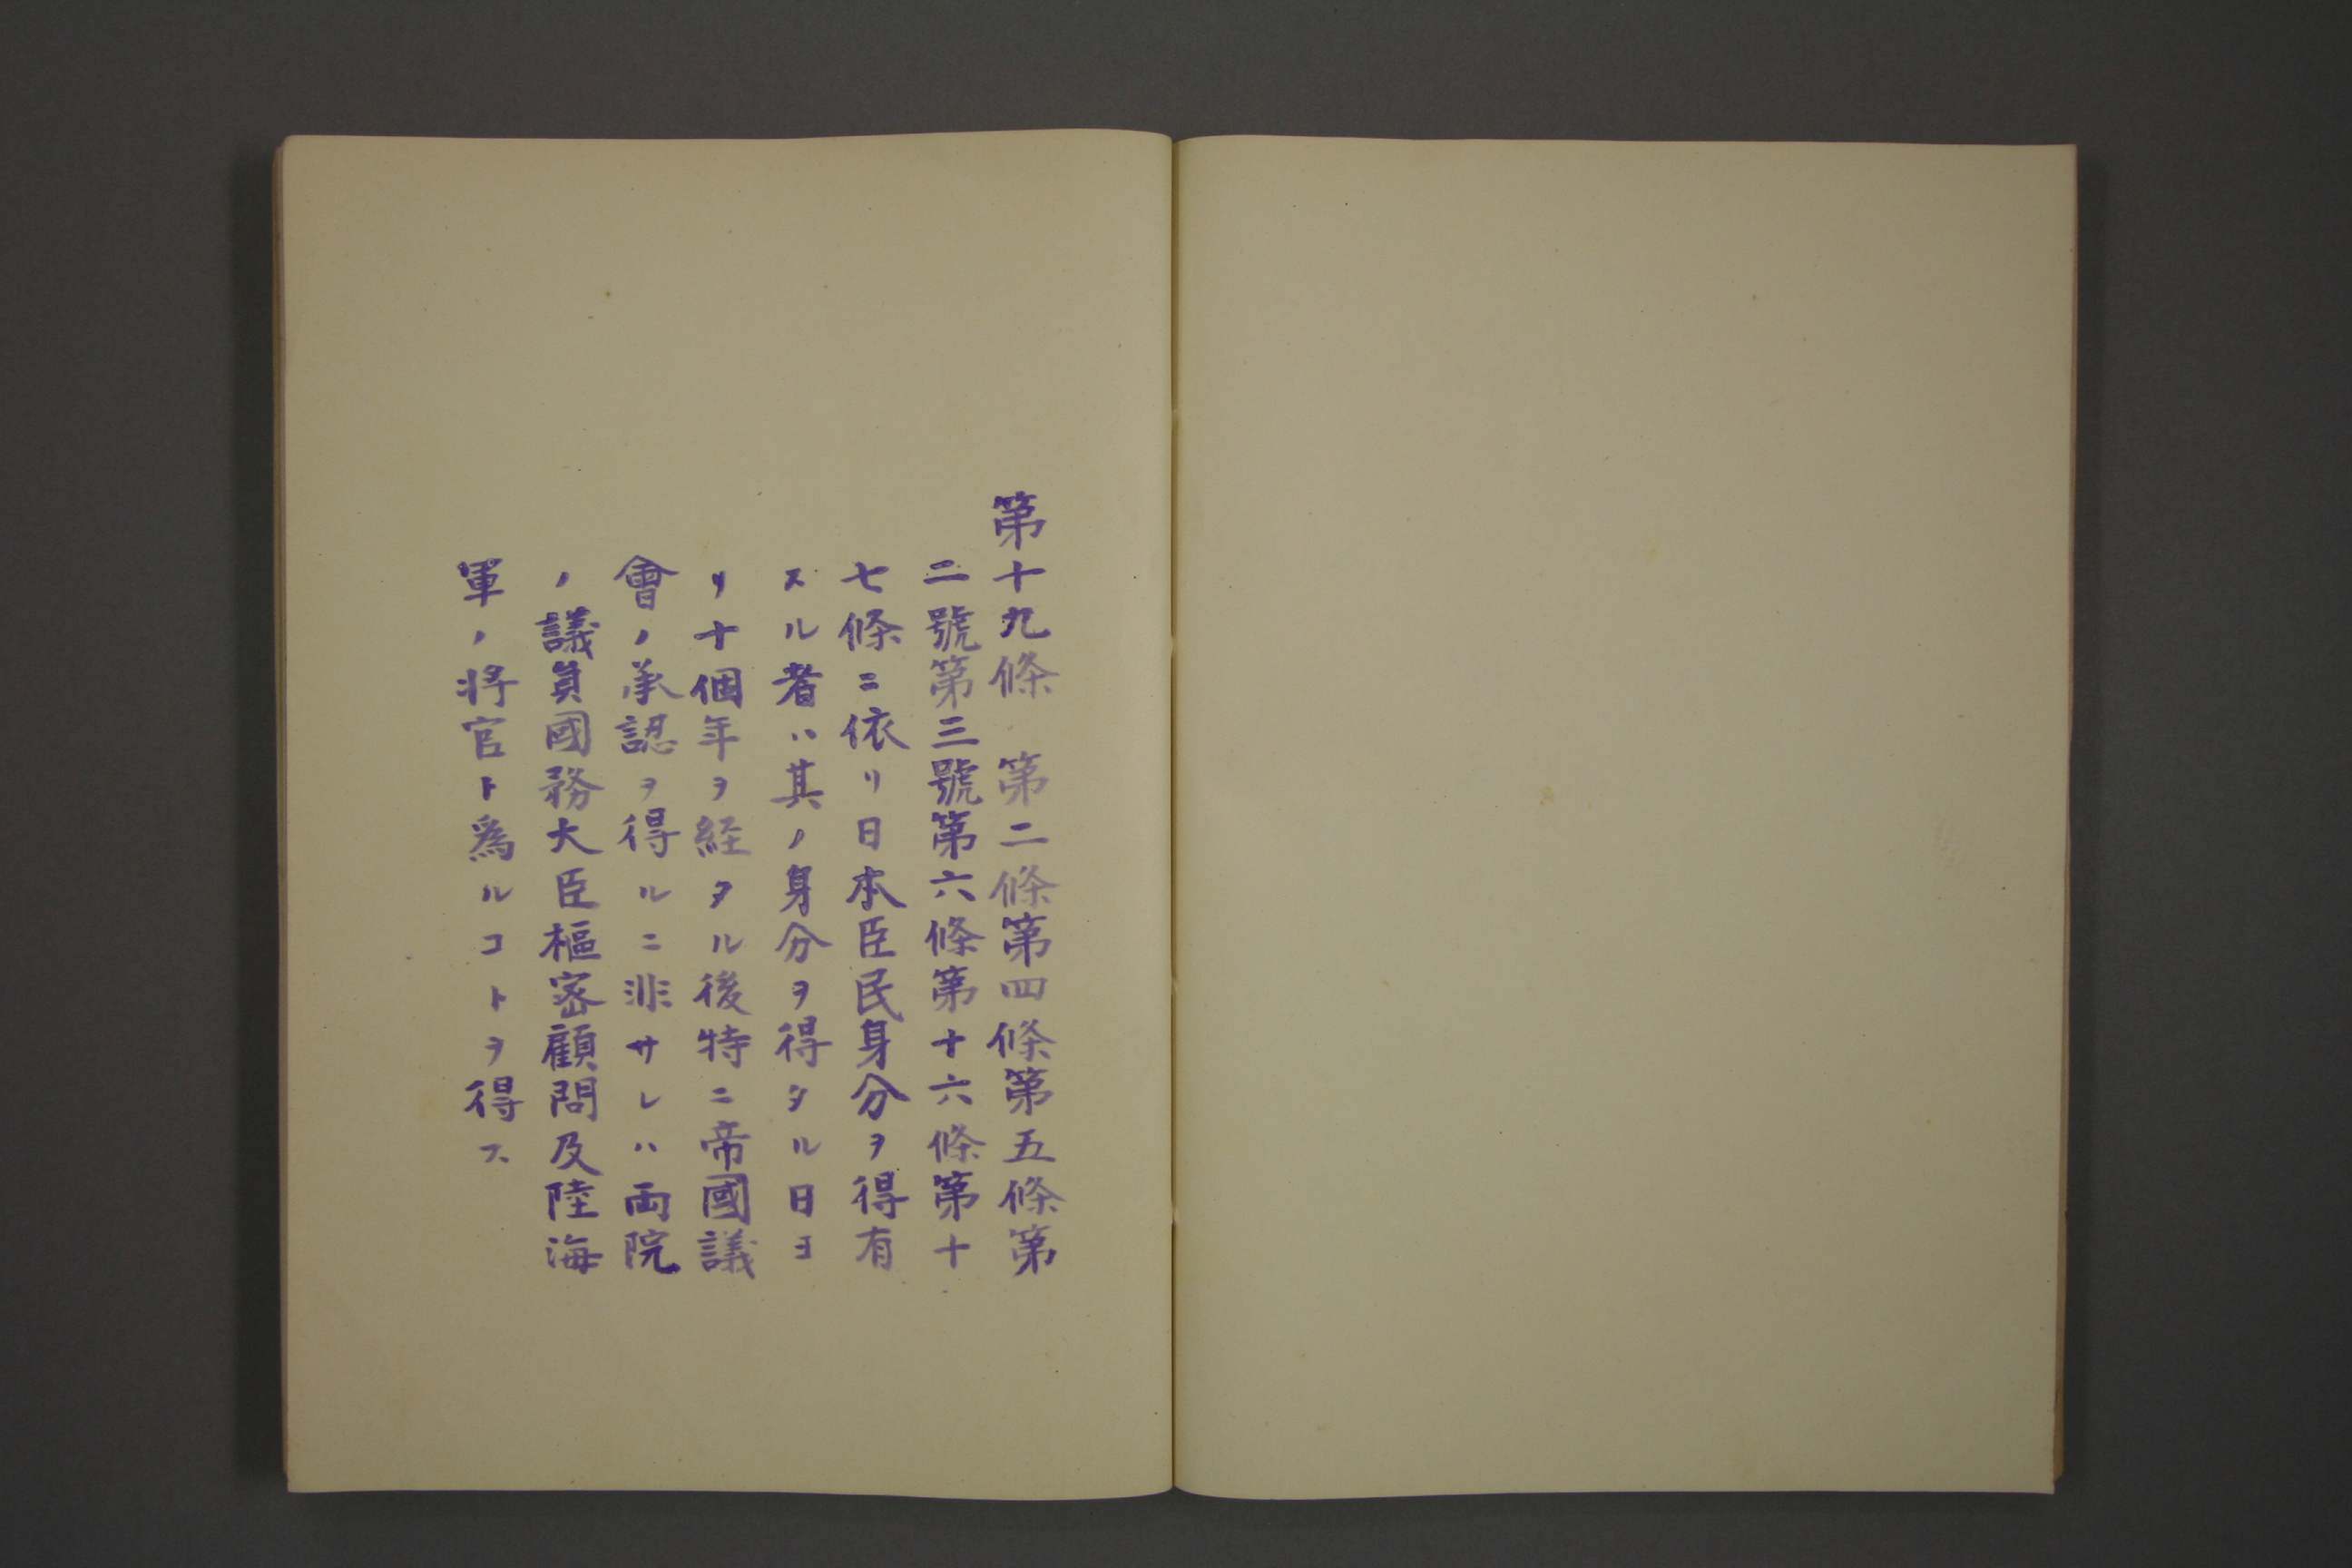 第十九條　第二條第四條第五條第
二號第三號第六條第十六條第十
七條ニ依リ日本臣民身分ヲ得有
スル者ハ其ノ身分ヲ得タル日ヨ
リ十個年ヲ経タル後特ニ帝國議
會ノ承認ヲ得ルニ非サレハ両院
ノ議員國務大臣樞密顧問及陸海
軍ノ将官ト爲ルコトヲ得ス